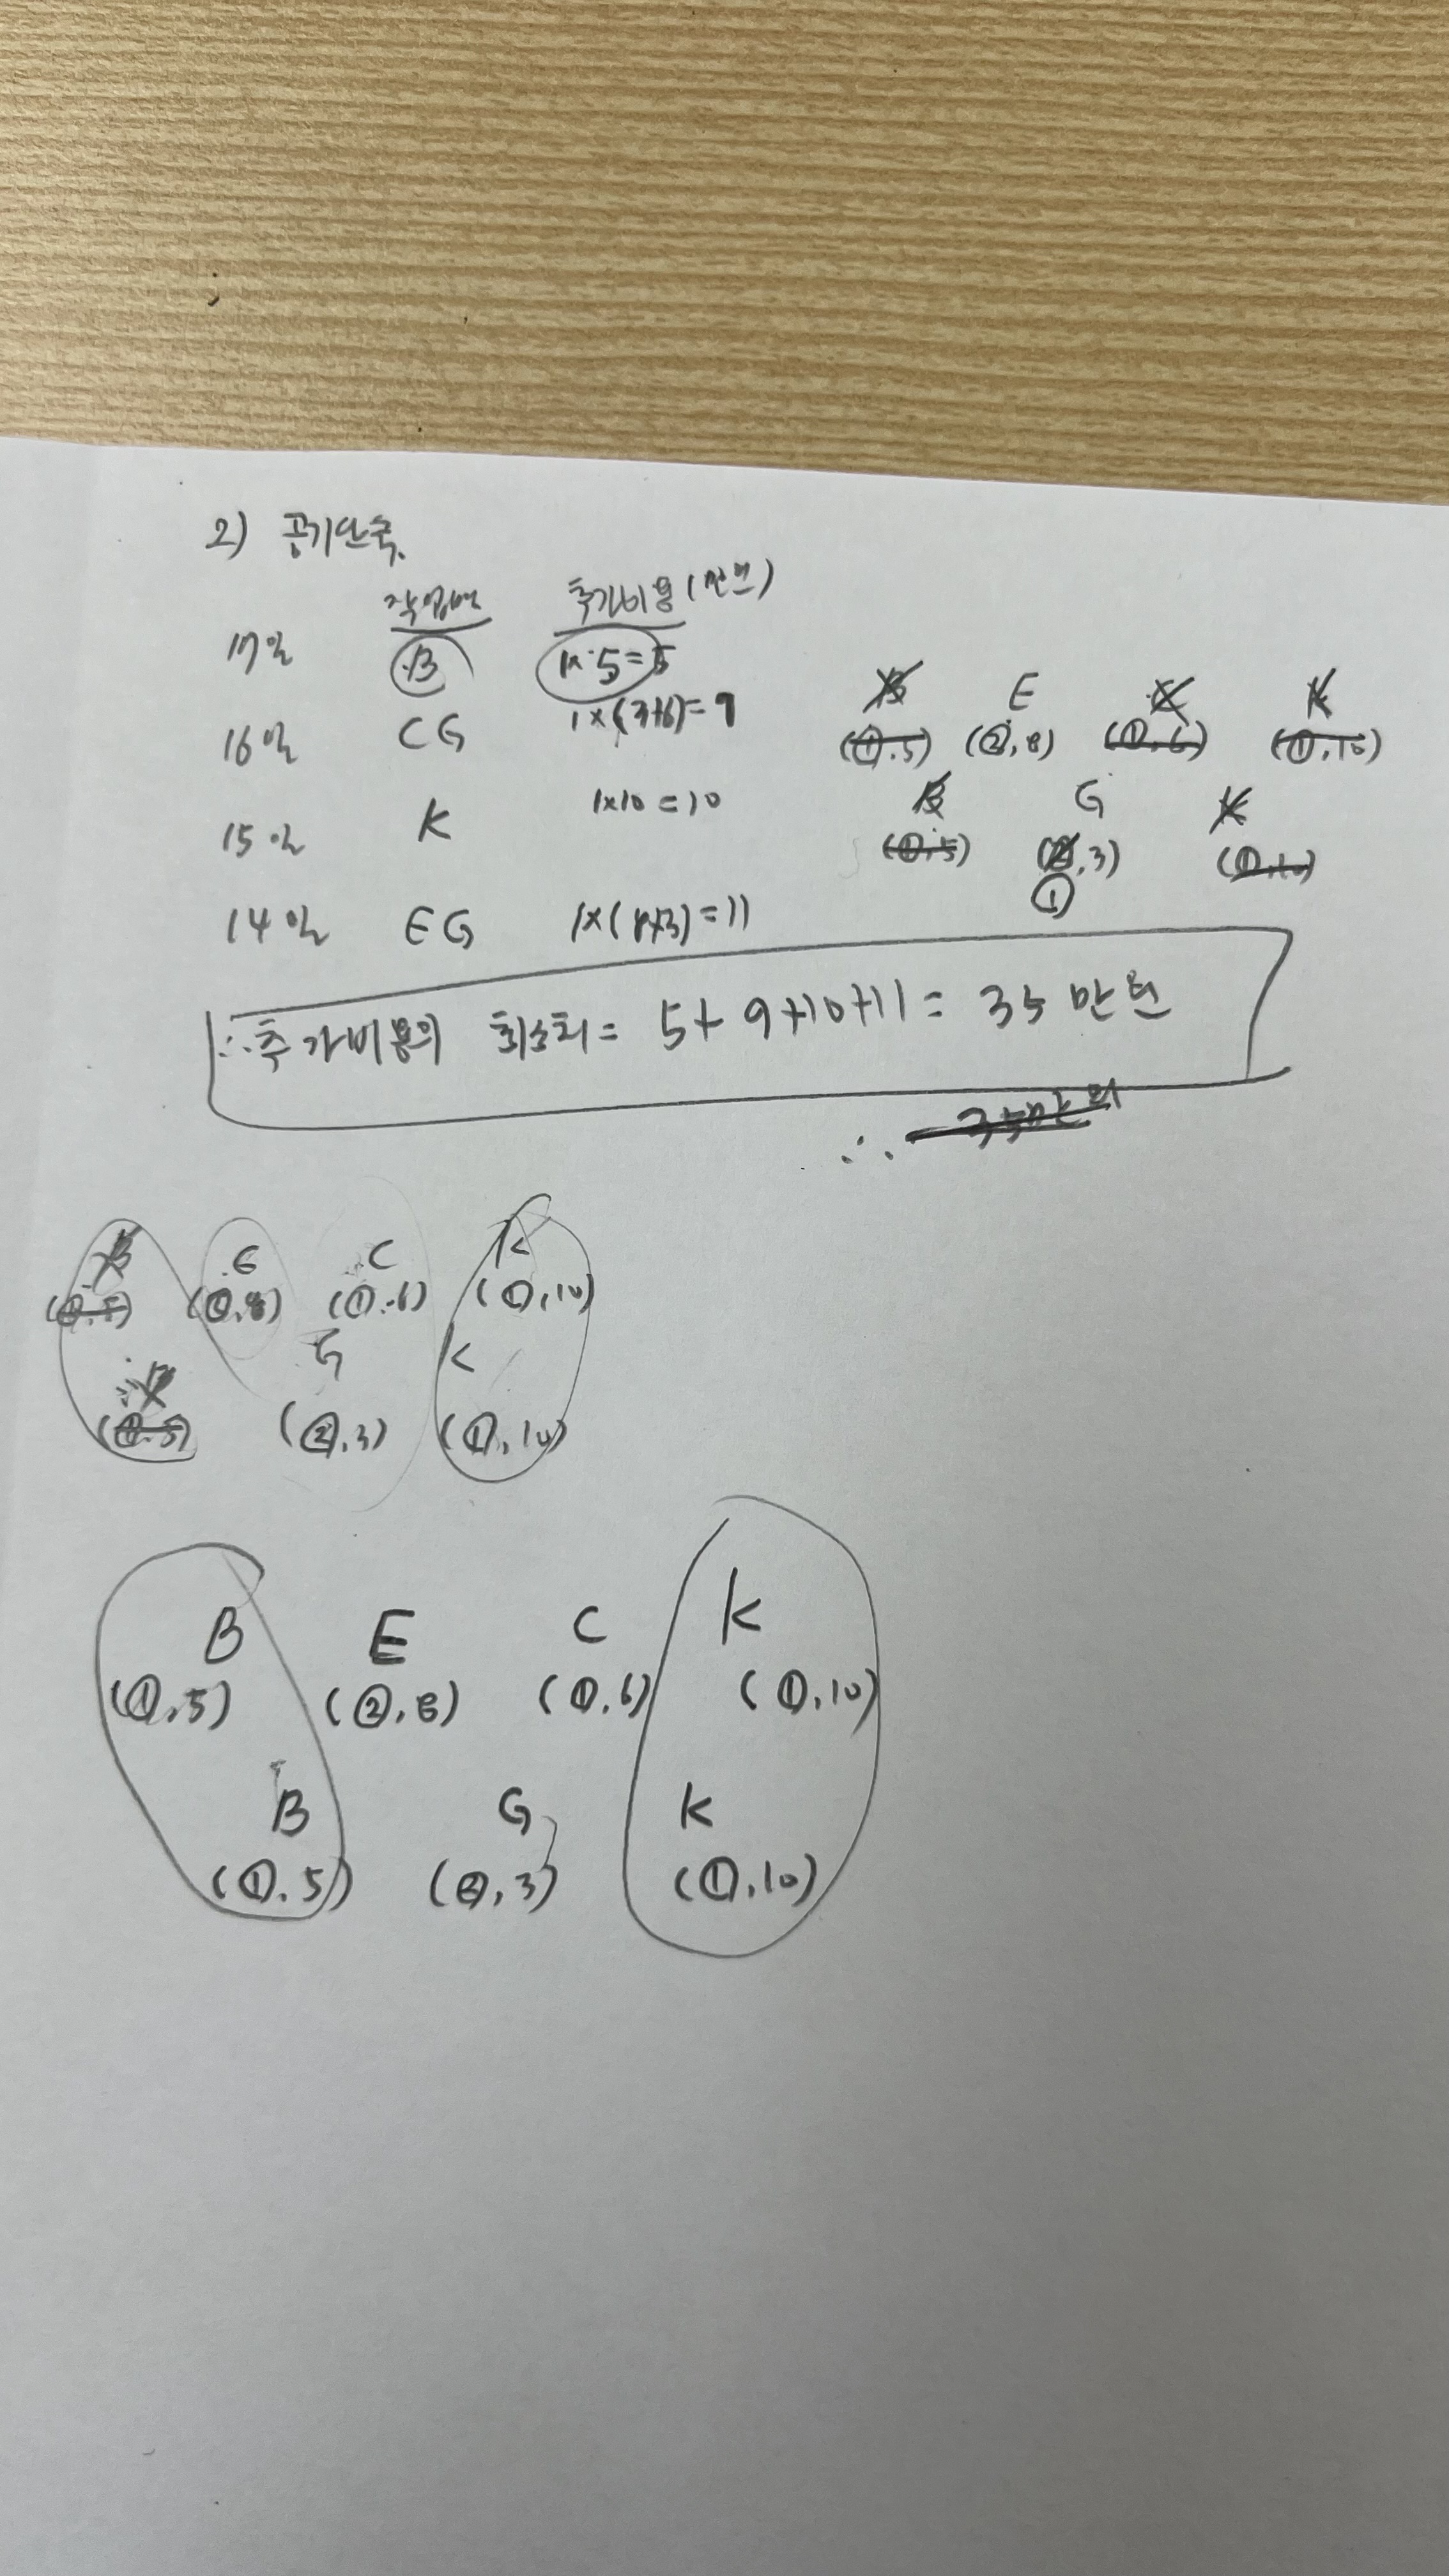 2) 공기단축.
작업명 추가비용(만원)
17일 B 1×5=5
16일 CG 1×(3+6)=9
15일 K 1×10=10
14일 EG 1×(8+3)=11
B E C K
(①,5) (②,8) (①,6) (①,10)
B G K
(①,5) (②,3) (①,10)
①
∴추가비용의 최소치= 5+9+10+11= 35만원
∴ 35만원
B E C K
(①,5) (②,8) (①,6) (①,10)
G K
B
(①,5) (②,3) (①,10)
B E C K
(①,5) (②,8) (①,6) (①,10)
B G K
(①,5) (②,3) (①,10)